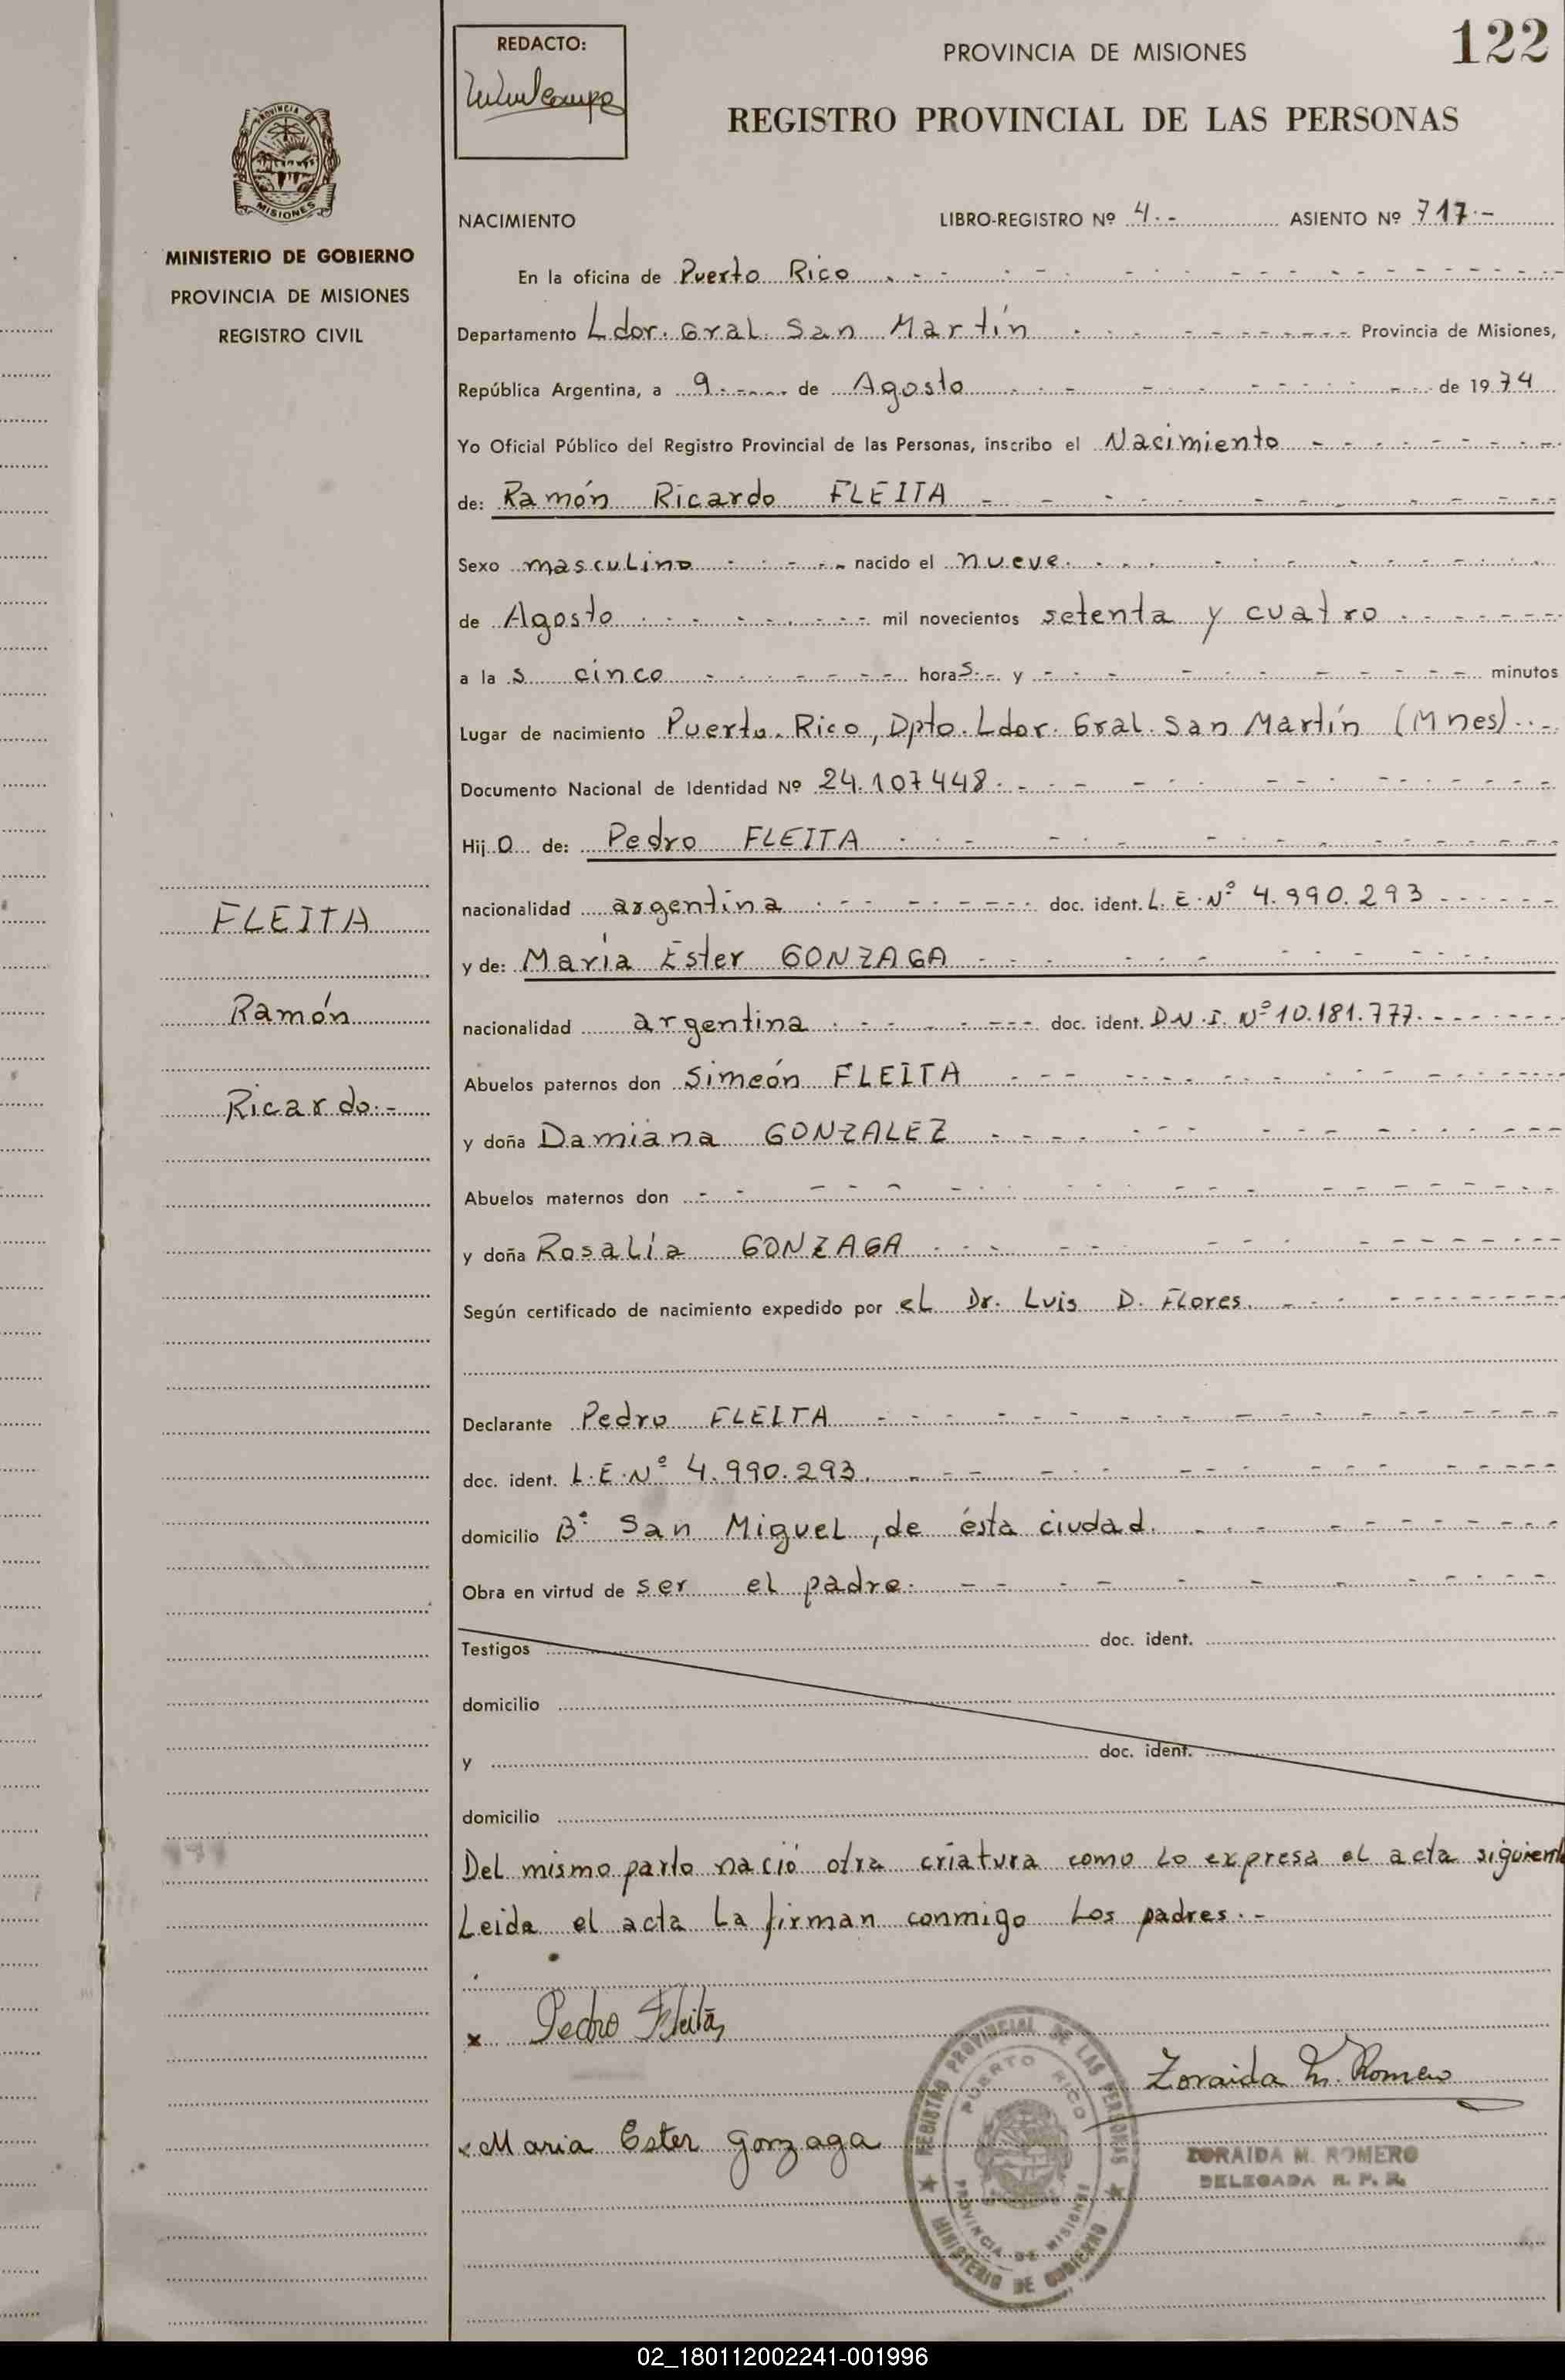 REDACTO:
PROVINCIA DE MISIONES
122
REGISTRO PROVINCIAL DE LAS PERSONAS
PROVINCIA DE
MISIONES
MINISTERIO DE GOBIERNO
PROVINCIA DE MISIONES
REGISTRO CIVIL
NACIMIENTO LIBRO-REGISTRO Nº 4.- ASIENTO Nº 717.-
En la oficina de Puerto Rico
Departamento Ldor. Gral. San Martín Provincia de Misiones,
República Argentina, a 9 de Agosto de 1974
Yo Oficial Público del Registro Provincial de las Personas, inscribo el Nacimiento
de: Ramón Ricardo FLEITA
Sexo masculino nacido el nueve
de Agosto mil novecientos setenta y cuatro
a la s cinco horas y minutos
Lugar de nacimiento Puerto Rico, Dpto. Ldor. Gral. San Martín (Mnes)
Documento Nacional de Identidad Nº 24.107448
Hijo de: Pedro FLEITA
nacionalidad argentina doc. ident. L.E.Nº 4.990.293
y de: María Ester GONZAGA
nacionalidad argentina doc. ident. D.N.I. Nº 10.181.777
Abuelos paternos don Simeón FLEITA
y doña Damiana GONZALEZ
Abuelos maternos don
y doña Rosalía GONZAGA
Según certificado de nacimiento expedido por el Dr. Luis D. Flores
FLEITA
Ramón
Ricardo.-
Declarante Pedro FLEITA
doc. ident. L.E.Nº 4.990.293
domicilio Bº San Miguel, de ésta ciudad
Obra en virtud de ser el padre.
Testigos doc. ident.
domicilio
y doc. ident.
domicilio
Del mismo parto nació otra criatura como lo expresa el acta siguiente
Leida el acta la firman conmigo los padres.-
x Pedro Fleita
Zoraida M. Romero
x Maria Ester Gonzaga
REGISTRO PROVINCIAL DE LAS PERSONAS
PUERTO RICO
PROVINCIA DE MISIONES
MINISTERIO DE GOBIERNO
ZORAIDA M. ROMERO
DELEGADA R. P. P.
02_180112002241-001996